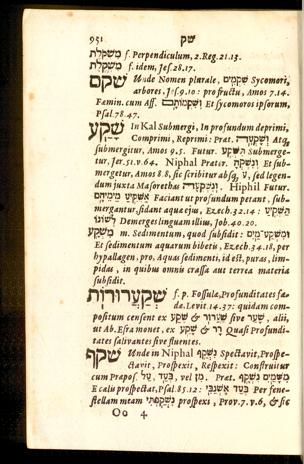 951 שק
מִשְׁקֹלֶת f. Perpendiculum, 2.Reg.21.13.
מִשְׁקֶלֶת f. idem, Jes.28.17.
שקם Unde Nomen plurale, שִׁקְמִים Sycomori,
arbores, Jes.9.10: pro fructu, Amos 7.14.
Fœmin. cum Aff. וְשִׁקְמוֹתָם Et sycomoros ipsorum,
Psal.78.47.
שָׁקַע In Kal Submergi, In profundum deprimi,
Comprimi, Reprimi: Præt. וְשָׁקְעָה Atq,
submergitur, Amos 9.5. Futur. תִּשְׁקַע submerge-
tur, Jer.51.v.64. Niphal Præter. וְנִשְׁקָה Et sub-
mergetur, Amos 8.8. sic scribitur absq, ע, sed legen-
dum juxta Masorethas וְנִשְׁקְעָה Hiphil Futur.
אַשְׁקִיעַ מֵימֵיהֶם Faciant ut profundum petant, sub-
mergantur, sidant aquæ ejus, Ezech.32.14: תַּשְׁקִיעַ
לְשׁוֹנוֹ Demerges linguam illius, Job.40.20.
מִשְׁקָע m. Sedimentum, quod subsidit: וּמִשְׁקַע־מַיִם
Et sedimentum aquarum bibetis, Ezech.34.18, per
hypallagen, pro, Aquas sedimenti, id est, puras, lim-
pidas, in quibus omnis crassa aut terrea materia
subsidit.
שְׁקַעֲרוּרוֹת f. p. Fossulæ, Profunditates sæ-
dæ. Levit.14.37: quidam com-
positum censent ex שֶׁקַע & עָרוּר sive עָרָה, alii,
ut Ab. Esra monet, ex שֶׁקַע & רָר Quasi Profundi-
tates salivantes sive fluentes.
שקף Unde in Niphal נִשְׁקַף Spectavit, Prospe-
ctavit, Prospexit, Respexit: Construitur
cum Præpos. עַל, בְּעַד, vel מִן. Præt. מִשָּׁמַיִם נִשְׁקָף
E cælis prospectat, Psal.85.12: בְּעַד אֶשְׁנַבִּי Per fene-
stellam meam נִשְׁקָפְתִּי prospexi, Prov.7.v.6, & sic
Oo 4